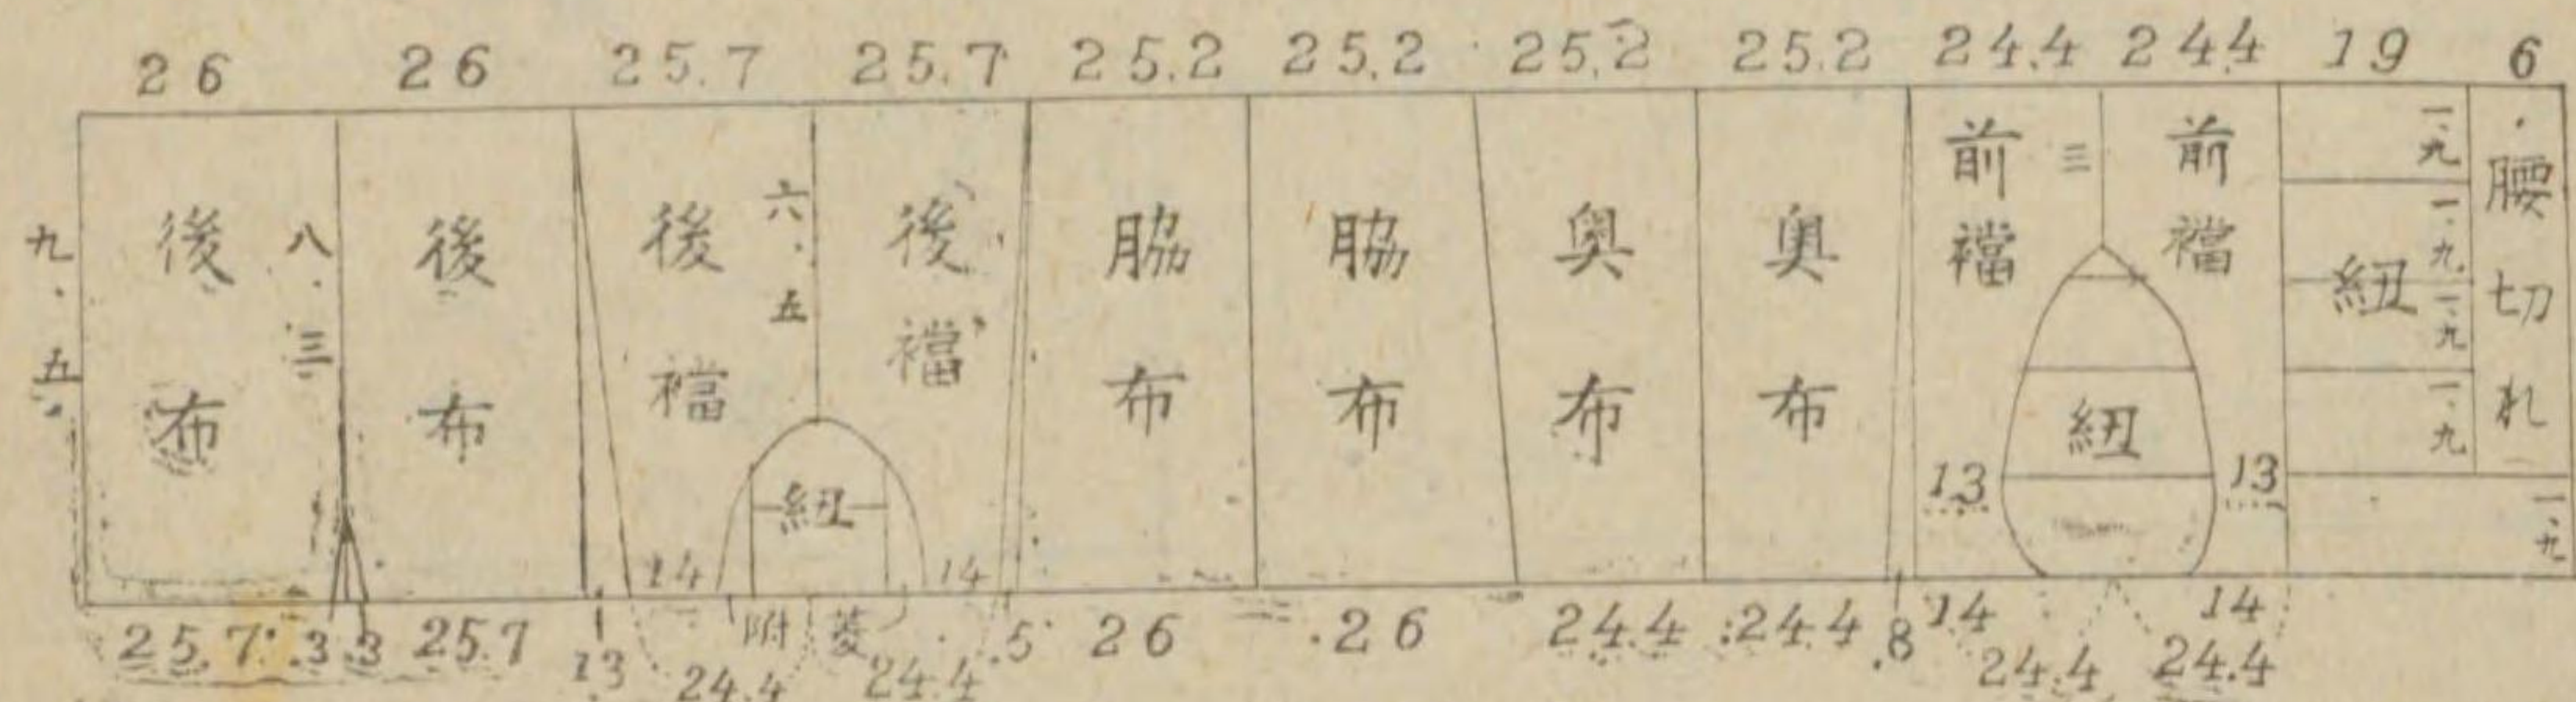 26 26 25.7 25.7 25.2 25.2 25.2 25.2 24.4 24.4 19 6
九.五.
後布
八.三
後布
後襠
六.五
後襠
紐
脇布
脇布
奥布
奥布
前襠
三
前襠
紐
一、九
一、九
紐
一、九
一、九
腰切れ
一、九
14 14 13 13
25.7 .3 .3 25.7 13 附 菱 .5 26 26 24.4 24.4 .8 14 14
24.4 24.4 24.4 24.4